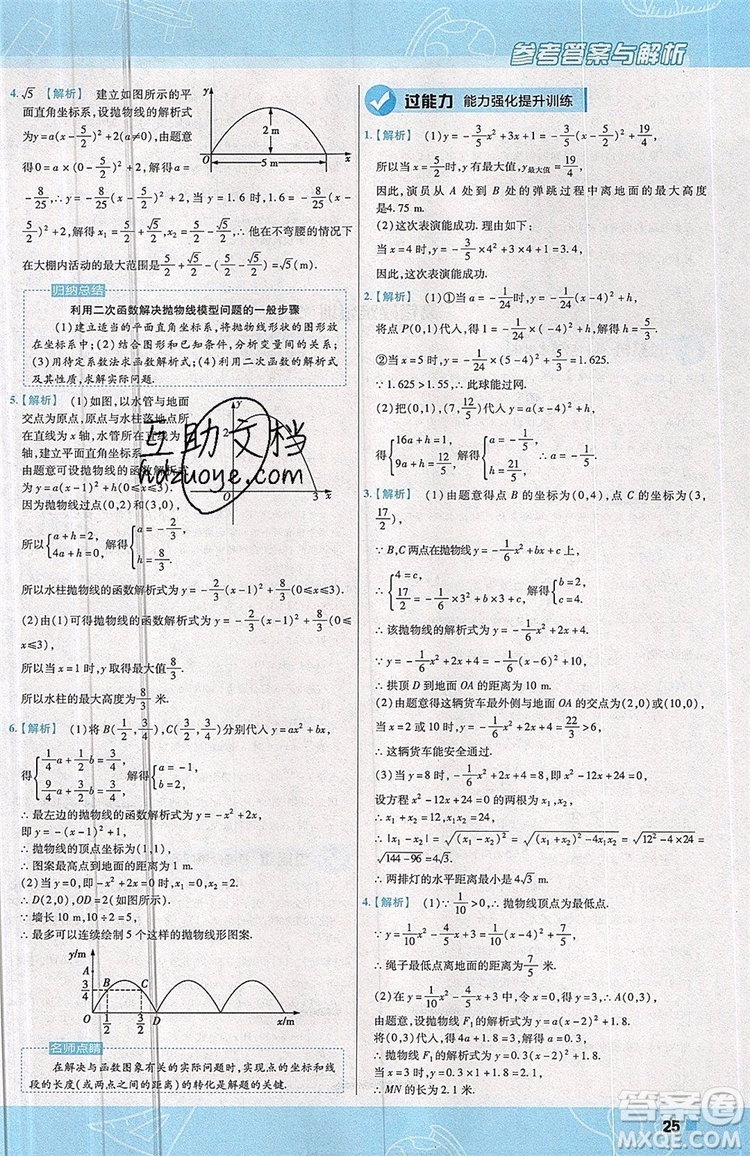 参考答案与解析
4. √5 【解析】 建立如图所示的平
面直角坐标系,设抛物线的解析式
为y=a(x-5/2)²+2(a≠0),由题意
得0=a(x-5/2)²+2,解得a=
-8/25,∴y=-8/25(x-5/2)²+2,当y=1.6时,-8/25(x-
5/2)²+2,解得x₁=5/2+√5/2,x₂=5/2-√5/2,∴他在不弯腰的情况下
在大棚内活动的最大范围是√5米.
y
2 m
O
5 m
x
归纳总结
利用二次函数解决抛物线模型问题的一般步骤
(1)建立适当的平面直角坐标系,将抛物线形状的图形放
在坐标系中.(2)结合图形和已知条件,确定函数解析式.
(3)用待定系数法求函数解析式.(4)利用二次函数的解析式
及性质,求解实际问题.
5.【解析】 (1)如图,以水管与地面
交点为原点,原点与水柱落地点所
在直线为x轴,水管所在直线为y
轴,建立平面直角坐标系.
由题意可设抛物线的函数解析式
为y=a(x-1)²+h(0≤x≤3).
因为抛物线过点(0,2)和(3,0),
所以{a+h=2, 4a+h=0, 解得{a=-2/3, h=8/3.
所以水柱抛物线的函数解析式为y=-2/3(x-1)²+8/3(0≤x≤3).
(2)由(1)可得抛物线的函数解析式为y=-2/3(x-1)²+8/3(0≤
x≤3),
所以当x=1时,y取得最大值8/3.
所以水柱的最大高度为8/3米.
y
2
3
x
6.【解析】 (1)将B(1/2,3/4),C(3/2,3/4)分别代入y=ax²+bx,
得{1/4a+1/2b=3/4, 9/4a+3/2b=3/4, 解得{a=-1, b=2.
∴最左边的抛物线的函数解析式为y=-x²+2x,
即y=-(x-1)²+1,
∴抛物线的顶点坐标为(1,1),
∴图案最高点到地面的距离为1 m.
(2)当y=0时,即-x²+2x=0,解得x₁=0,x₂=2,
∴D(2,0)(如图所示).
∵墙长10 m,10÷2=5,
∴最多可以连续绘制5个这样的抛物线形图案.
y/m
A
3/4
B
C
O
1/2
3/2
D
x/m
名师点睛
在解决与函数图象有关的实际问题时,实现点的坐标和线
段的长度(或两点之间的距离)的转化是解题的关键.
过能力 能力强化提升训练
1.【解析】 (1)y=-3/5x²+3x+1=-3/5(x-5/2)²+19/4,
所以当x=5/2时,y有最大值,y最大值=19/4.
因此,演员从A处到B处的弹跳过程中离地面的最大高度
是4.75 m.
(2)这次表演能成功.理由如下:
当x=4时,y=-3/5×4²+3×4+1=3.4,
因此,这次表演成功.
2.【解析】 (1)①当a=-1/24时,y=-1/24(x-4)²+h,
将点P(0,1)代入,得-1/24×16+h=1,解得h=5/3.
②当x=5时,y=-1/24×(5-4)²+5/3=1.625.
∵1.625>1.55,∴此球能过网.
(2)把(0,1),(7,12/5)代入y=a(x-4)²+h,
得{16a+h=1, 9a+h=12/5, 解得{a=-1/5, h=21/5.
3.【解析】 (1)由题意得点B的坐标为(0,4),点C的坐标为(3,
17/2),
∵B,C两点在抛物线y=-1/6x²+bx+c上,
∴{4=c, 17/2=-1/6×3²+3b+c, 解得{b=2, c=4,
∴该抛物线的解析式为y=-1/6x²+2x+4.
∵y=-1/6x²+2x+4=-1/6(x-6)²+10,
∴拱顶D到地面OA的距离为10 m.
(2)由题意得货运汽车最外侧与地面OA的交点为(2,0)或(10,0),
当x=2或x=10时,y=22/3>6,
∴这辆货车能安全通过.
(3)当y=8时,-1/6x²+2x+4=8,即x²-12x+24=0,
设方程x²-12x+24=0的两根为x₁,x₂,
∴x₁+x₂=12,x₁x₂=24,
∴|x₁-x₂|=√(x₁-x₂)²=√(x₁+x₂)²-4x₁x₂=√12²-4×24=
√144-96=4√3,
∴两排灯的水平距离最小是4√3 m.
4.【解析】 (1)∵1/10>0,∴抛物线顶点为最低点.
∵y=1/10x²-4/5x+3=1/10(x-4)²+7/5,
∴绳子最低点离地面的距离为7/5 m.
(2)在y=1/10x²-4/5x+3中,令x=0,得y=3,即A(0,3).
由题意,得抛物线F₁的顶点坐标为(2,1.8),
由题意,设抛物线F₁的解析式为y=a(x-2)²+1.8,
将(0,3)代入,得4a+1.8=3,解得a=0.3,
∴抛物线F₁的解析式为y=0.3(x-2)²+1.8.
当x=3时,y=0.3×1+1.8=2.1,
∴MN的长度为2.1米.
互助文档
hdzuoye.com
25
答案圈
MXQE.COM